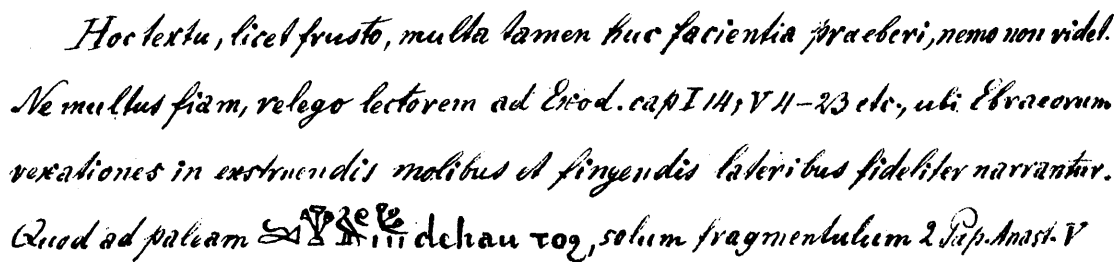 Hoc textu, licet frusto, multa tamen huc facientia praeberi, nemo non videt.
Ne multus fiam, relego lectorem ad Exod. cap I 14, V 4–23 etc., ubi Ebraeorum
vexationes in exstruendis molibus et fingendis lateribus fideliter narrantur.
Quod ad paleam dehau, solum fragmentulum 2 Pap. Anast. V